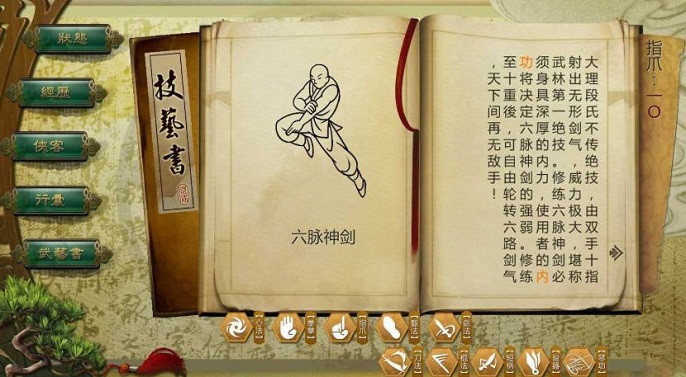 狀態
經歷
俠客
行囊
武藝書
技藝書
六脉神剑
指爪：一〇
大理段氏不传绝技，由双手十指
射出无形剑气，威力极大，堪称
武林第一绝技。修练六脉神剑必
须身具深厚的内力，使用者的内
功将决定六脉神剑的强弱。修练
至十重後，可自由轮转六路剑气
，天下间再无敌手！
心法
拳掌
指爪
腿法
刀法